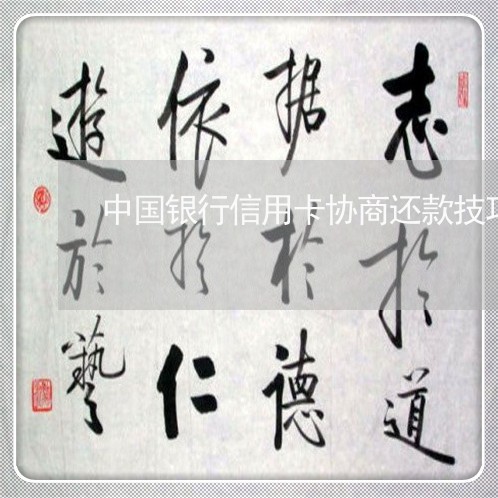 志於道
据於德
依於仁
遊於藝
中国银行信用卡协商还款技